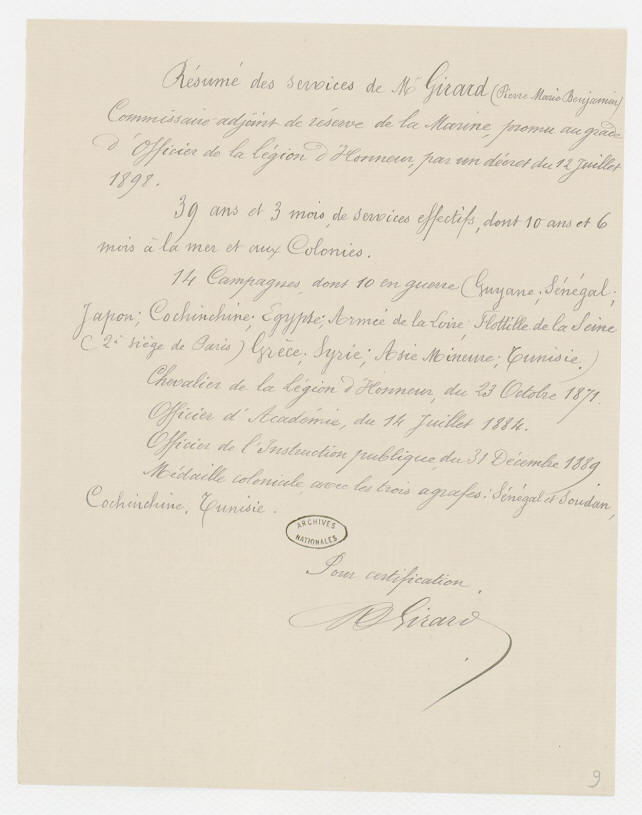 Résumé des services de Mr Girard (Pierre Marie Benjamin)
Commissaire adjoint de réserve de la Marine, promu au grade
d'Officier de la légion d'Honneur, par un décret du 12 Juillet
1898.
39 ans et 3 mois, de services effectifs, dont 10 ans et 6
mois à la mer et aux Colonies.
14 Campagnes, dont 10 en guerre (Guyane; Sénégal;
Japon; Cochinchine; Egypte; Armée de la Loire; Flottille de la Seine
(2e siège de Paris) Grèce; Syrie; Asie Mineure; Tunisie.)
Chevalier de la légion d'Honneur, du 23 Octobre 1871.
Officier d'Académie, du 14 Juillet 1884.
Officier de l'Instruction publique, du 31 Décembre 1889
Médaille coloniale, avec les trois agrafes: Sénégal et Soudan,
Cochinchine, Tunisie.
ARCHIVES
NATIONALES
Pour certification.
B Girard
9